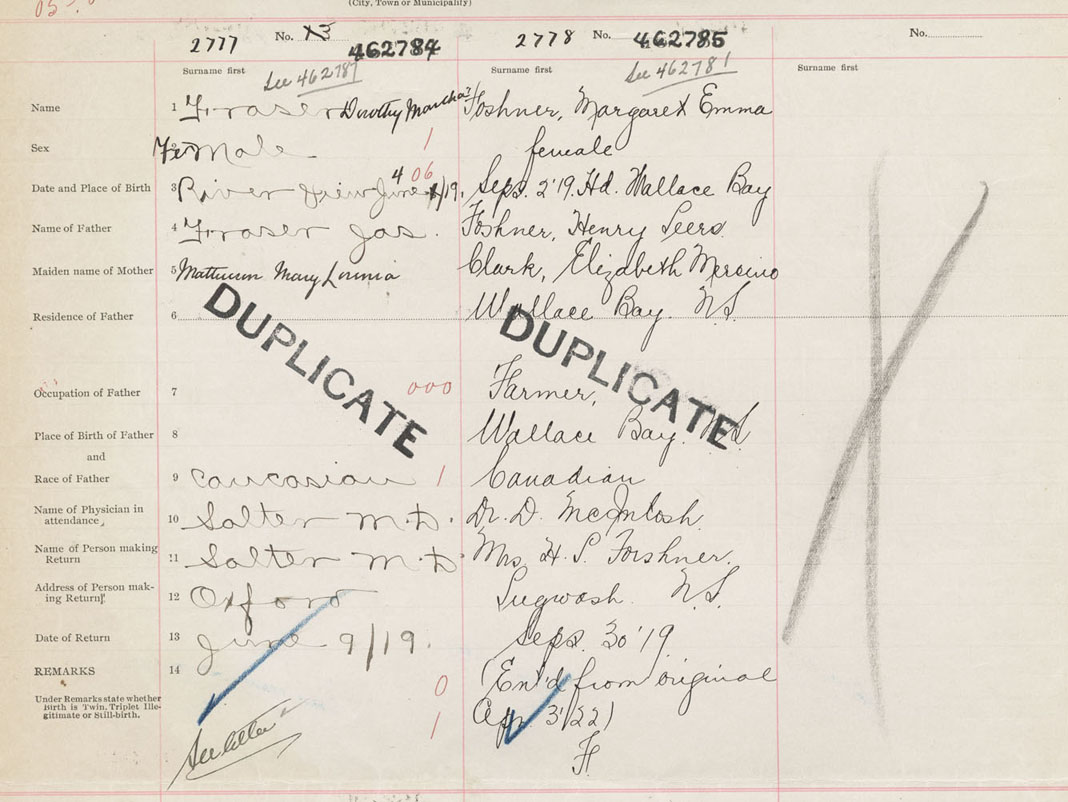 (City, Town or Municipality)
2777 No. X3 462784
See 462787
2778 No. 462785
See 462781
No.
Surname first
Surname first
Surname first
Name
1 Fraser Dorothy Martha
Foshner, Margaret Emma
Sex
2 Female 1
female
Date and Place of Birth
3 River View June 4/19. 06
Sept. 2'19. Hd. Wallace Bay
Name of Father
4 Fraser Jas.
Foshner, Henry Seers
Maiden name of Mother
5 Mary
Clark, Elizabeth
Residence of Father
6
Wallace Bay. N.S.
DUPLICATE
DUPLICATE
Occupation of Father
7 000
Farmer,
Place of Birth of Father
8
Wallace Bay. N.S
and
Race of Father
9 Caucasian 1
Canadian
Name of Physician in
attendance
10 Salter M.D.
Dr. D. McIntosh.
Name of Person making
Return
11 Salter M.D.
Mrs. H. S. Forshner.
Address of Person mak-
ing Return
12 Oxford
Pugwash. N.S.
Date of Return
13 June 9/19.
Sept. 30'19
REMARKS
14
Under Remarks state whether
Birth is Twin, Triplet Ille-
gitimate or Still-birth.
0
1
See letter
(Ent'd from original
Apr. 3/22)
F